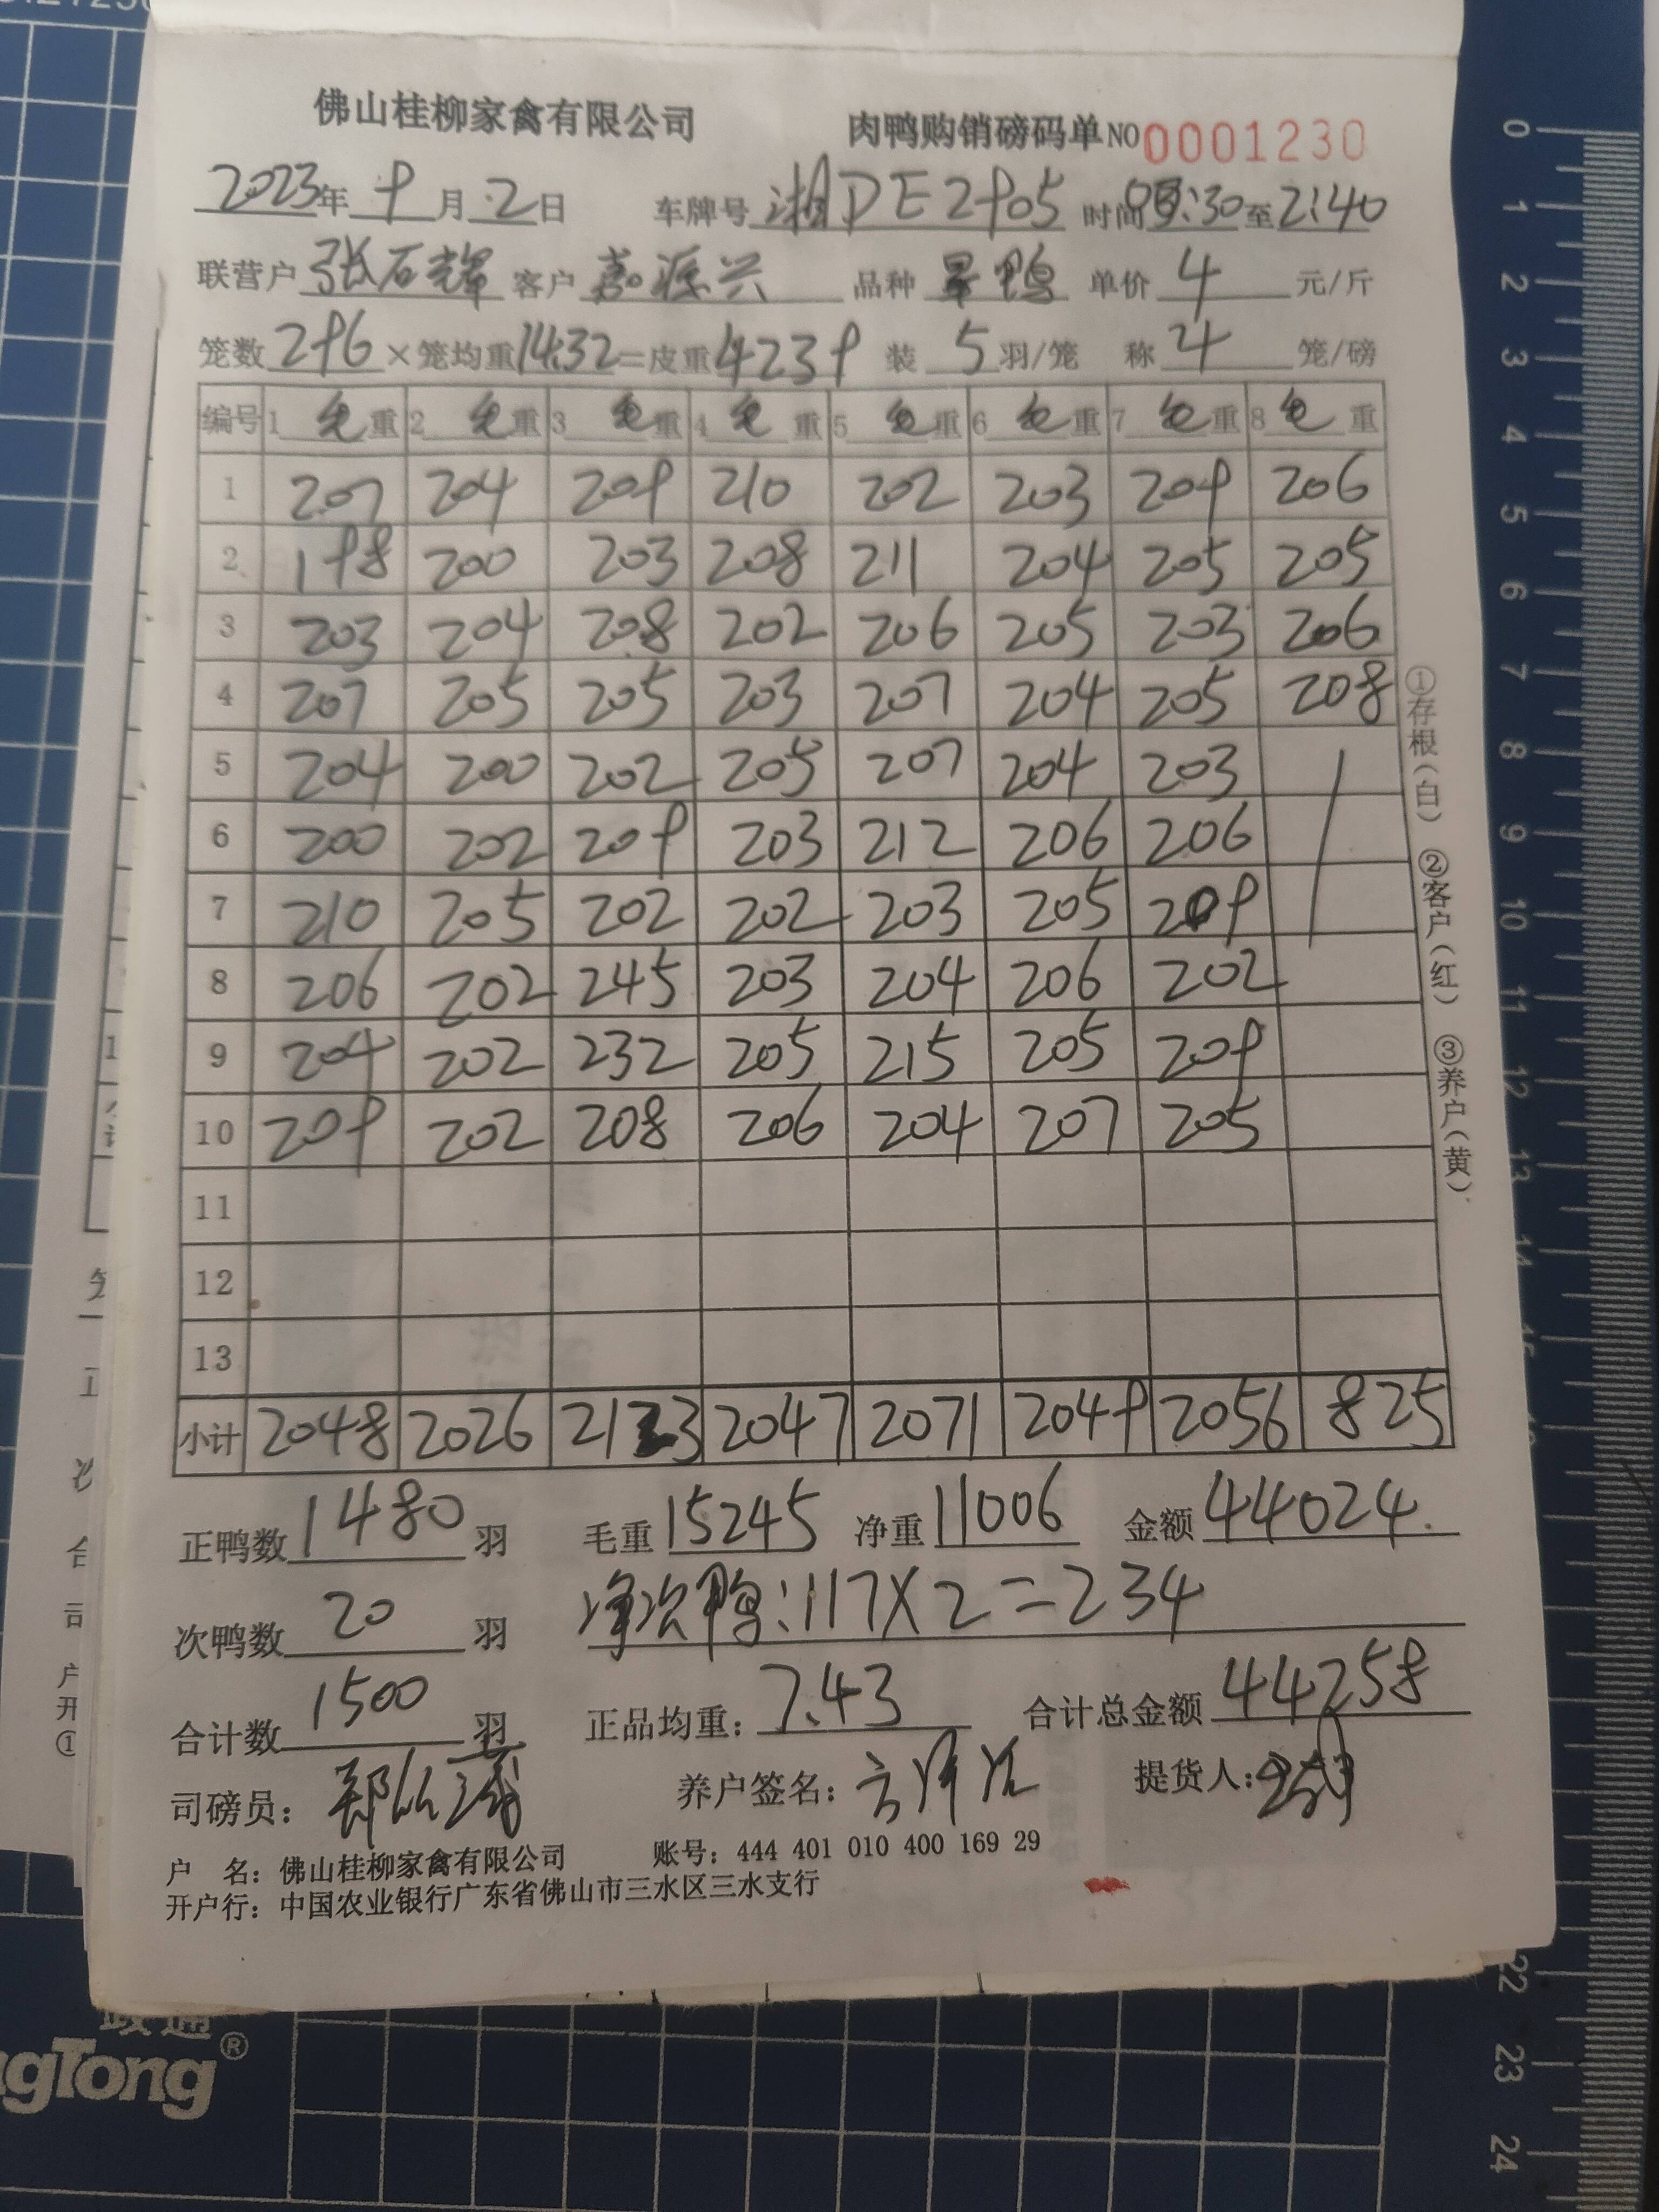 佛山桂柳家禽有限公司 肉鸭购销磅码单 NO 0001230
2023年 9月 2日 车牌号 湘DE2905 时间 :30至2:40
联营户 张石辉 客户 嘉源兴 品种 鸭 单价 4 元/斤
笼数 296 × 笼均重 14.32 = 皮重 4239 装 5 羽/笼 称 4 笼/磅
编号 1 毛重 2 毛重 3 毛重 4 毛重 5 毛重 6 毛重 7 毛重 8 毛重
1 207 204 209 210 202 203 209 206
2 198 200 203 208 211 204 205 205
3 203 204 208 202 206 205 203 206
4 207 205 205 203 207 204 205 208
5 204 200 202 205 207 204 203
6 200 202 209 203 212 206 206
7 210 205 202 202 203 205 209
8 206 202 245 203 204 206 202
9 204 202 232 205 215 205 209
10 209 202 208 206 204 207 205
11
12
13
小计 2048 2026 2123 2047 2071 2049 2056 825
正鸭数 1480 羽 毛重 15245 净重 11006 金额 44024.
次鸭数 20 羽 净次鸭:117×2=234
合计数 1500 羽 正品均重: 7.43 合计总金额 44258
司磅员: 养户签名: 提货人:
户 名: 佛山桂柳家禽有限公司 账号: 444 401 010 400 169 29
开户行: 中国农业银行广东省佛山市三水区三水支行
①存根(白) ②客户(红) ③养户(黄)
0 1 2 3 4 5 6 7 8 9 10 11 12 13 14 15 22 23 24
gTong®